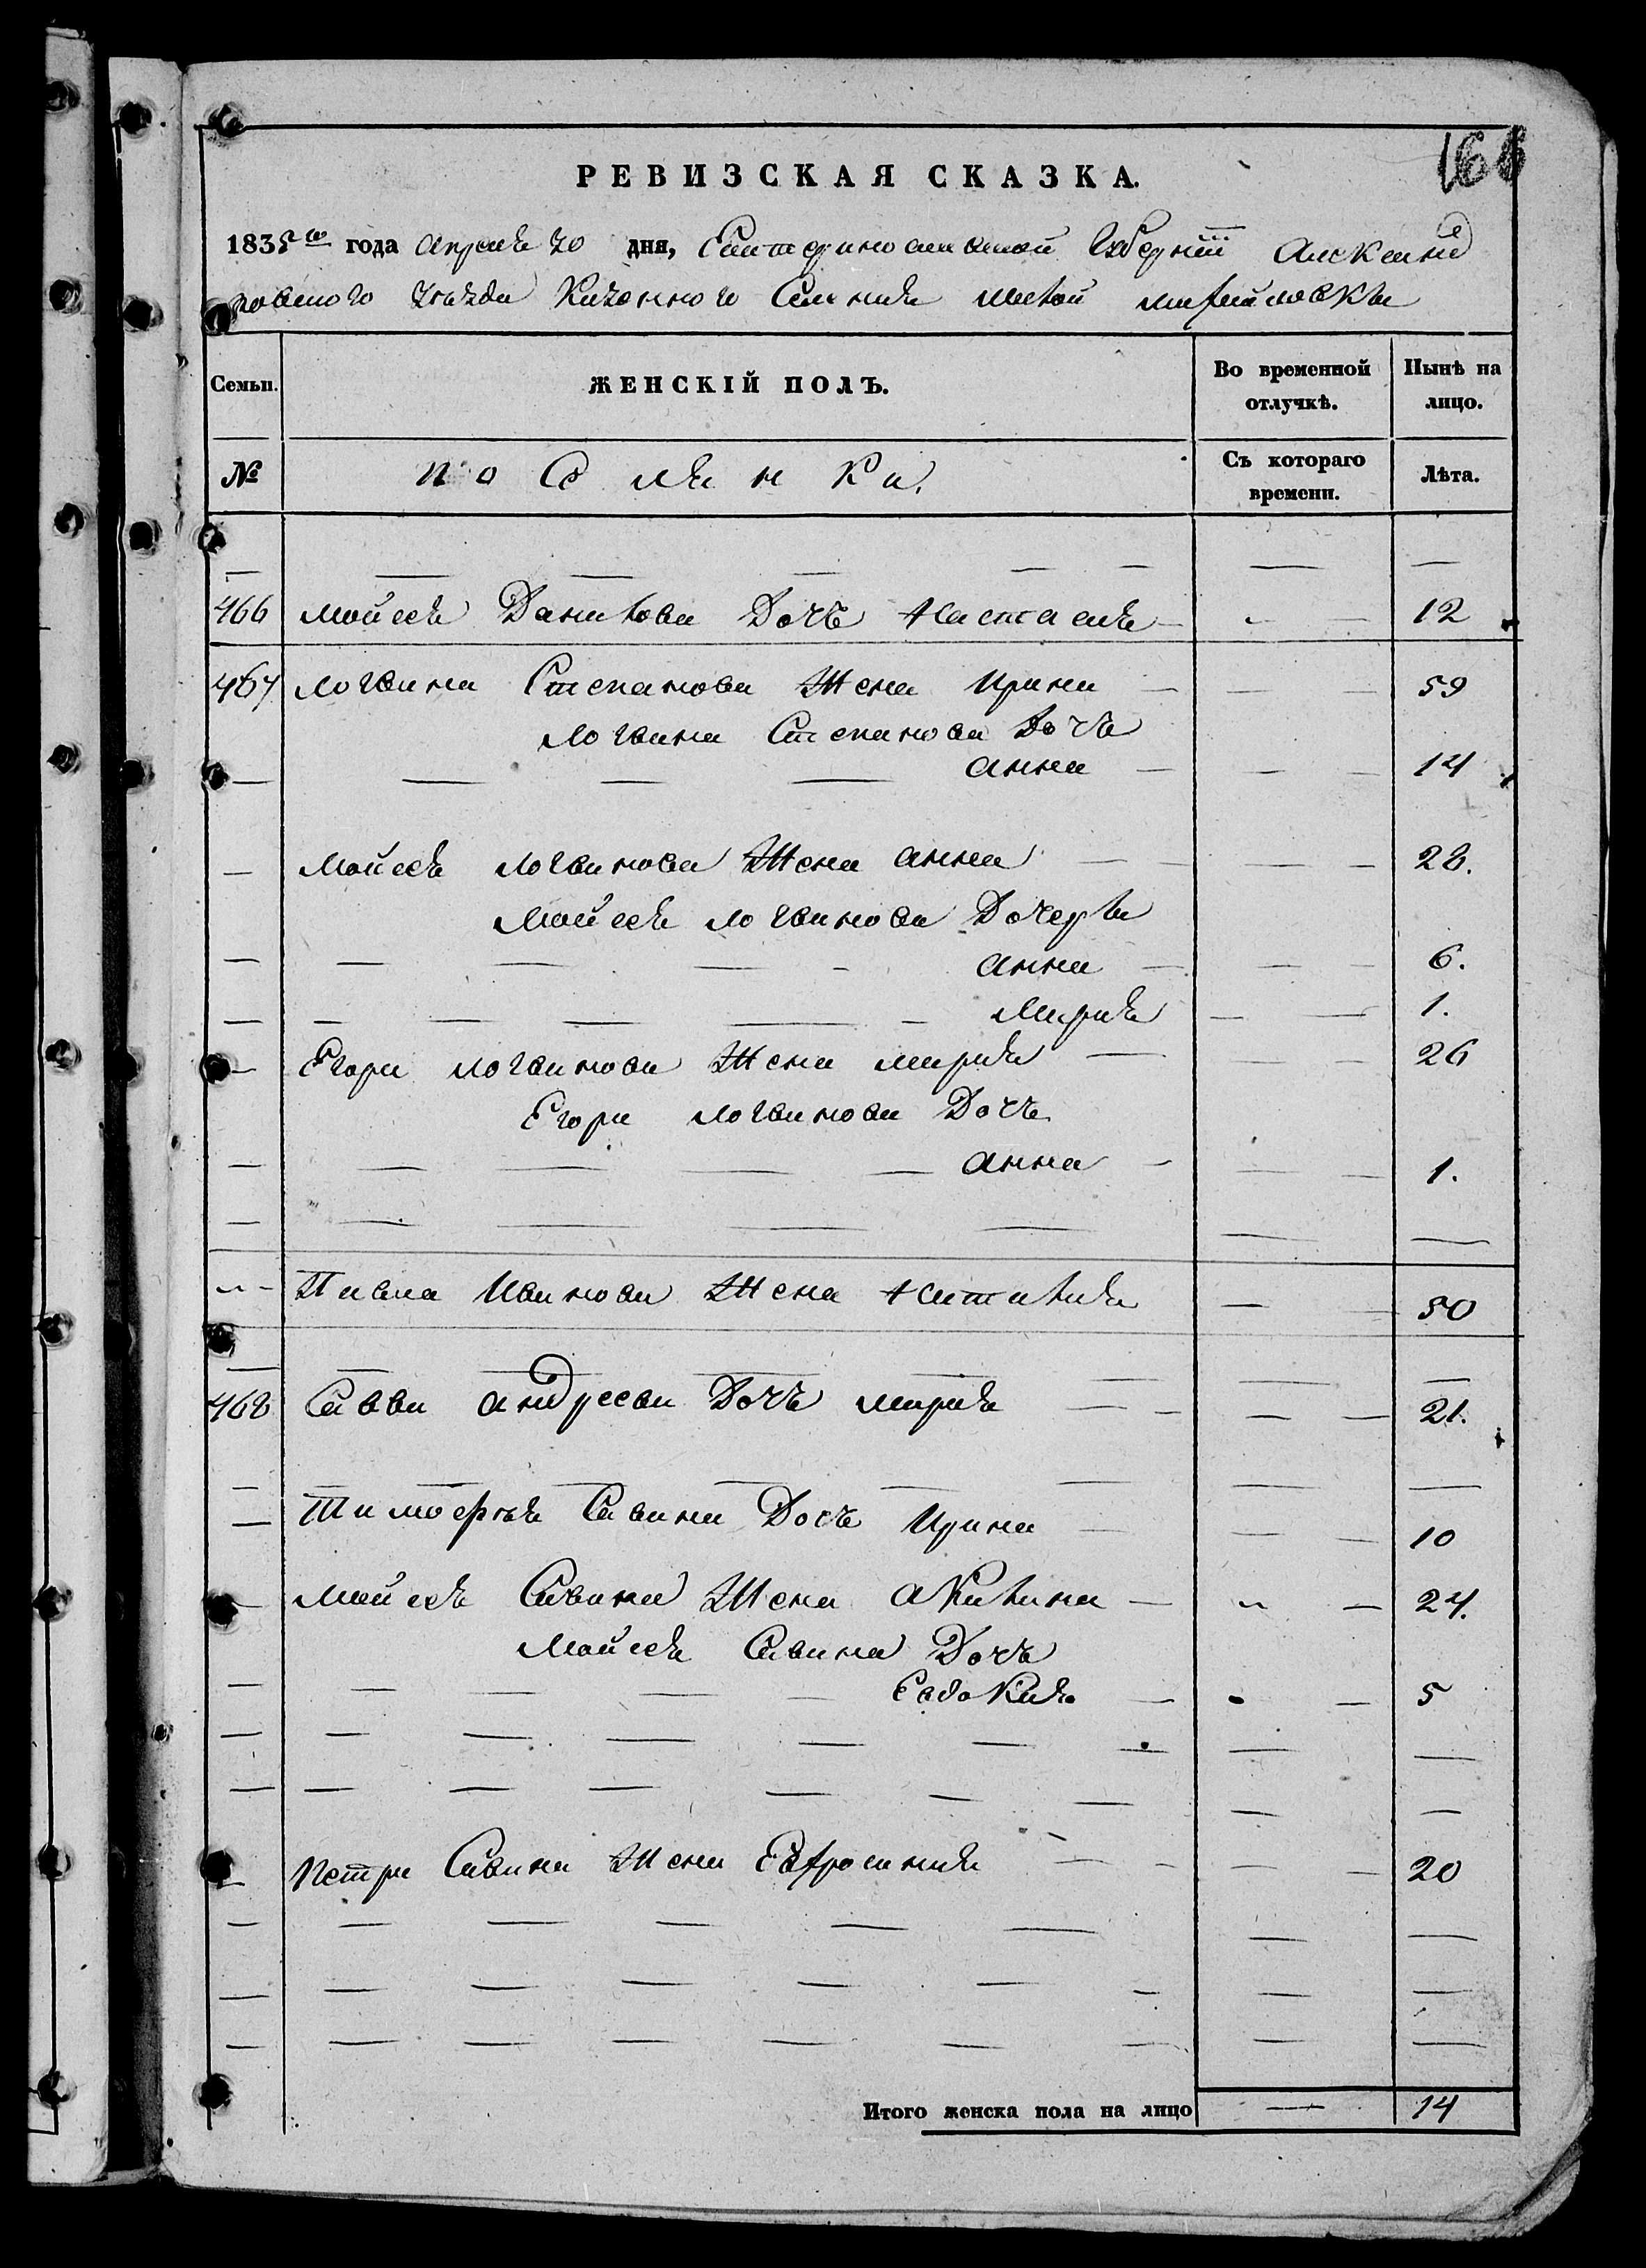 166
РЕВИЗСКАЯ СКАЗКА.
1835го года Апреля 20 дня, Екатеринославской Губернiи Александ
ровского уезда Казенного Селения малой михайловки
Семьи. ЖЕНСКІЙ ПОЛЪ. Во временной отлучкѣ. Нынѣ на лицо.
№ поселянки. Съ котораго времени. Лѣта.
466 Мойсея Данилова Дочь Настасия 12
467 Логвина Степанова Жена Ирина 59
Логвина Степанова Дочь
Анна 14
Мойсея Логвинова Жена Анна 28.
Мойсея Логвинова Дочери
Анна 6.
Мария 1.
Егора Логвинова Жена Мария 26
Егора Логвинова Дочь
Анна 1.
Павла Иванова Жена Наталия 50
468 Савви Андреева Дочь Мария 21.
Тимофея Савина Дочь Ирина 10
Мойсея Савина Жена Акилина 24.
Мойсея Савина Дочь
Евдокия 5
Петра Савина Жена Евфросиния 20
Итого женска пола на лицо — 14